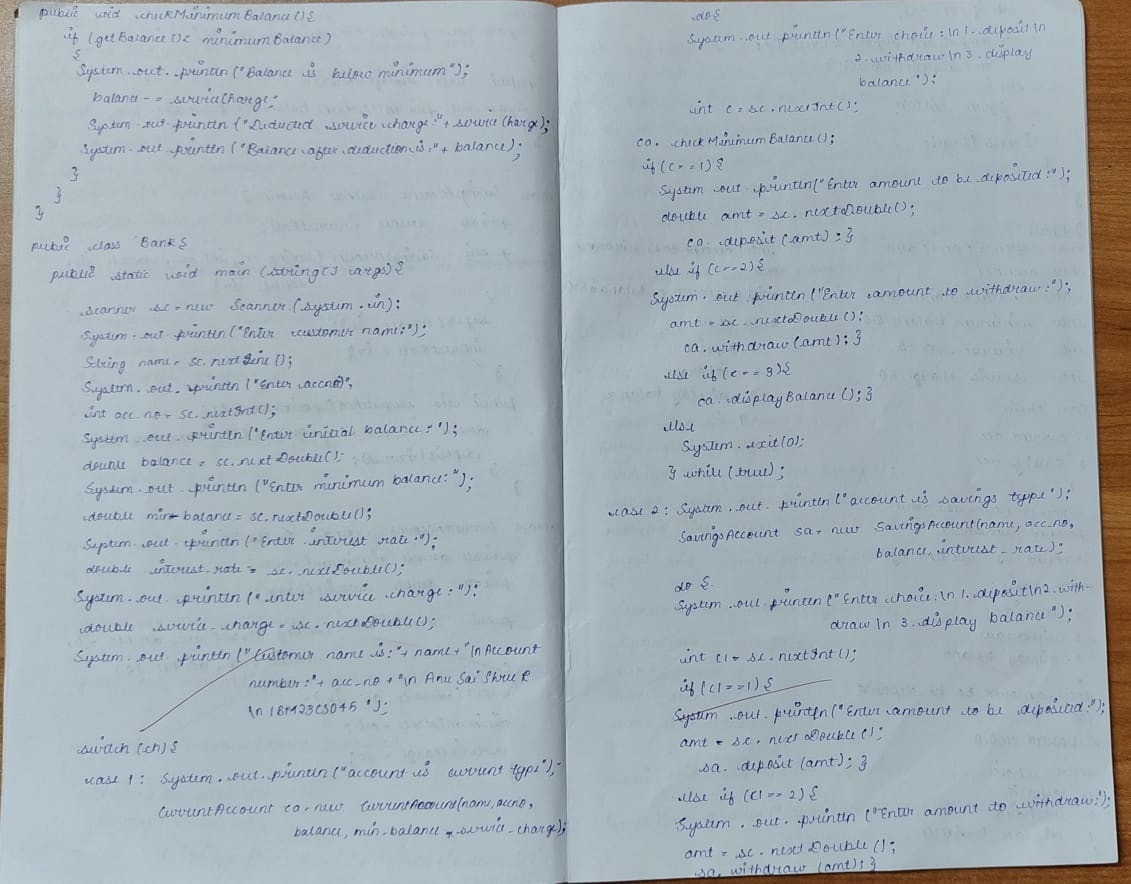 public void checkMinimumBalance(){
if (getBalance()< minimumBalance)
{
System.out.println("Balance is below minimum");
balance -= serviceCharge;
System.out.println("Deducted service charge:"+ serviceCharge);
System.out.println("Balance after deduction is:"+ balance);
}
}
}
public class Bank{
public static void main (string[] args){
scanner sc = new Scanner (system.in);
System.out.println("Enter customer name:");
String name = sc.nextLine();
System.out.println("Enter accno");
int acc_no = sc.nextInt();
System.out.println("Enter initial balance:");
double balance = sc.nextDouble();
System.out.println("Enter minimum balance:");
double min-balance = sc.nextDouble();
System.out.println("Enter interest rate:");
double interest-rate = sc.nextDouble();
System.out.println("enter service charge:");
double service-charge = sc.nextDouble();
System.out.println("Customer name is:"+ name+"\n Account
number:"+ acc-no +"\n Anu Sai Shree R
\n 1BM23CS045");
switch (ch){
case 1: System.out.println("account is current type");
CurrentAccount ca = new CurrentAccount(name, accno,
balance, min-balance, service-charge);
do{
System.out.println("Enter choice:\n 1.deposit \n
2.withdraw \n 3.display
balance");
int c = sc.nextInt();
ca.checkMinimumBalance();
if (c==1){
System.out.println("Enter amount to be deposited:");
double amt = sc.nextDouble();
ca.deposit(amt);}
else if (c==2){
System.out.println("Enter amount to withdraw:");
amt = sc.nextDouble();
ca.withdraw(amt);}
else if (c==3){
ca.displayBalance();}
else
System.exit(0);
} while (true);
case 2: System.out.println("account is savings type");
SavingsAccount sa = new SavingsAccount(name, acc-no,
balance, interest-rate);
do {
System.out println("Enter choice:\n 1.deposit\n2.with-
draw \n 3.display balance");
int c1 = sc.nextInt();
if (c1==1){
System.out.println("Enter amount to be deposited:");
amt = sc.nextDouble();
sa.deposit(amt);}
else if (c1==2){
System.out.println("Enter amount to withdraw:");
amt = sc.nextDouble();
sa.withdraw(amt);}